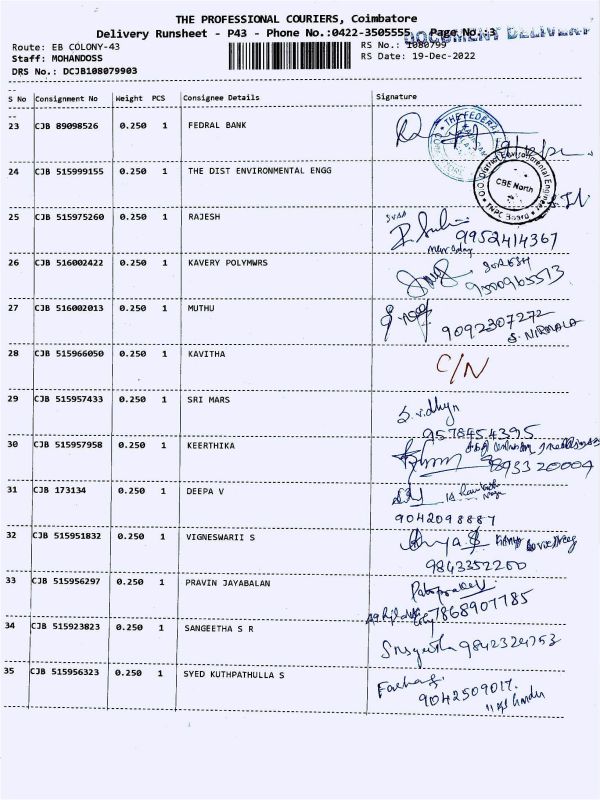 THE PROFESSIONAL COURIERS, Coimbatore
Delivery Runsheet - P43 - Phone No.:0422-3505555 Page No.:3
DOCUMENT DELIVERY
Route: EB COLONY-43 RS No.: 1080799
Staff: MOHANDOSS RS Date: 19-Dec-2022
DRS No.: DCJB108079903
S No Consignment No Weight PCS Consignee Details Signature
23 CJB 89098526 0.250 1 FEDRAL BANK
THE FEDERAL
24 CJB 515999155 0.250 1 THE DIST ENVIRONMENTAL ENGG
O/O District Environmental Engineer
CBE North
TNPC Board
25 CJB 515975260 0.250 1 RAJESH
9952414367
26 CJB 516002422 0.250 1 KAVERY POLYMWRS
9500965513
27 CJB 516002013 0.250 1 MUTHU
9092307272
S. NIRMALA
28 CJB 515966050 0.250 1 KAVITHA C/N
29 CJB 515957433 0.250 1 SRI MARS S.vidhya
9578454395
30 CJB 515957958 0.250 1 KEERTHIKA
9893320004
31 CJB 173134 0.250 1 DEEPA V
9042098887
32 CJB 515951832 0.250 1 VIGNESWARII S
9843352260
33 CJB 515956297 0.250 1 PRAVIN JAYABALAN
7868907785
34 CJB 515923823 0.250 1 SANGEETHA S R
9842324753
35 CJB 515956323 0.250 1 SYED KUTHPATHULLA S
9042509017.